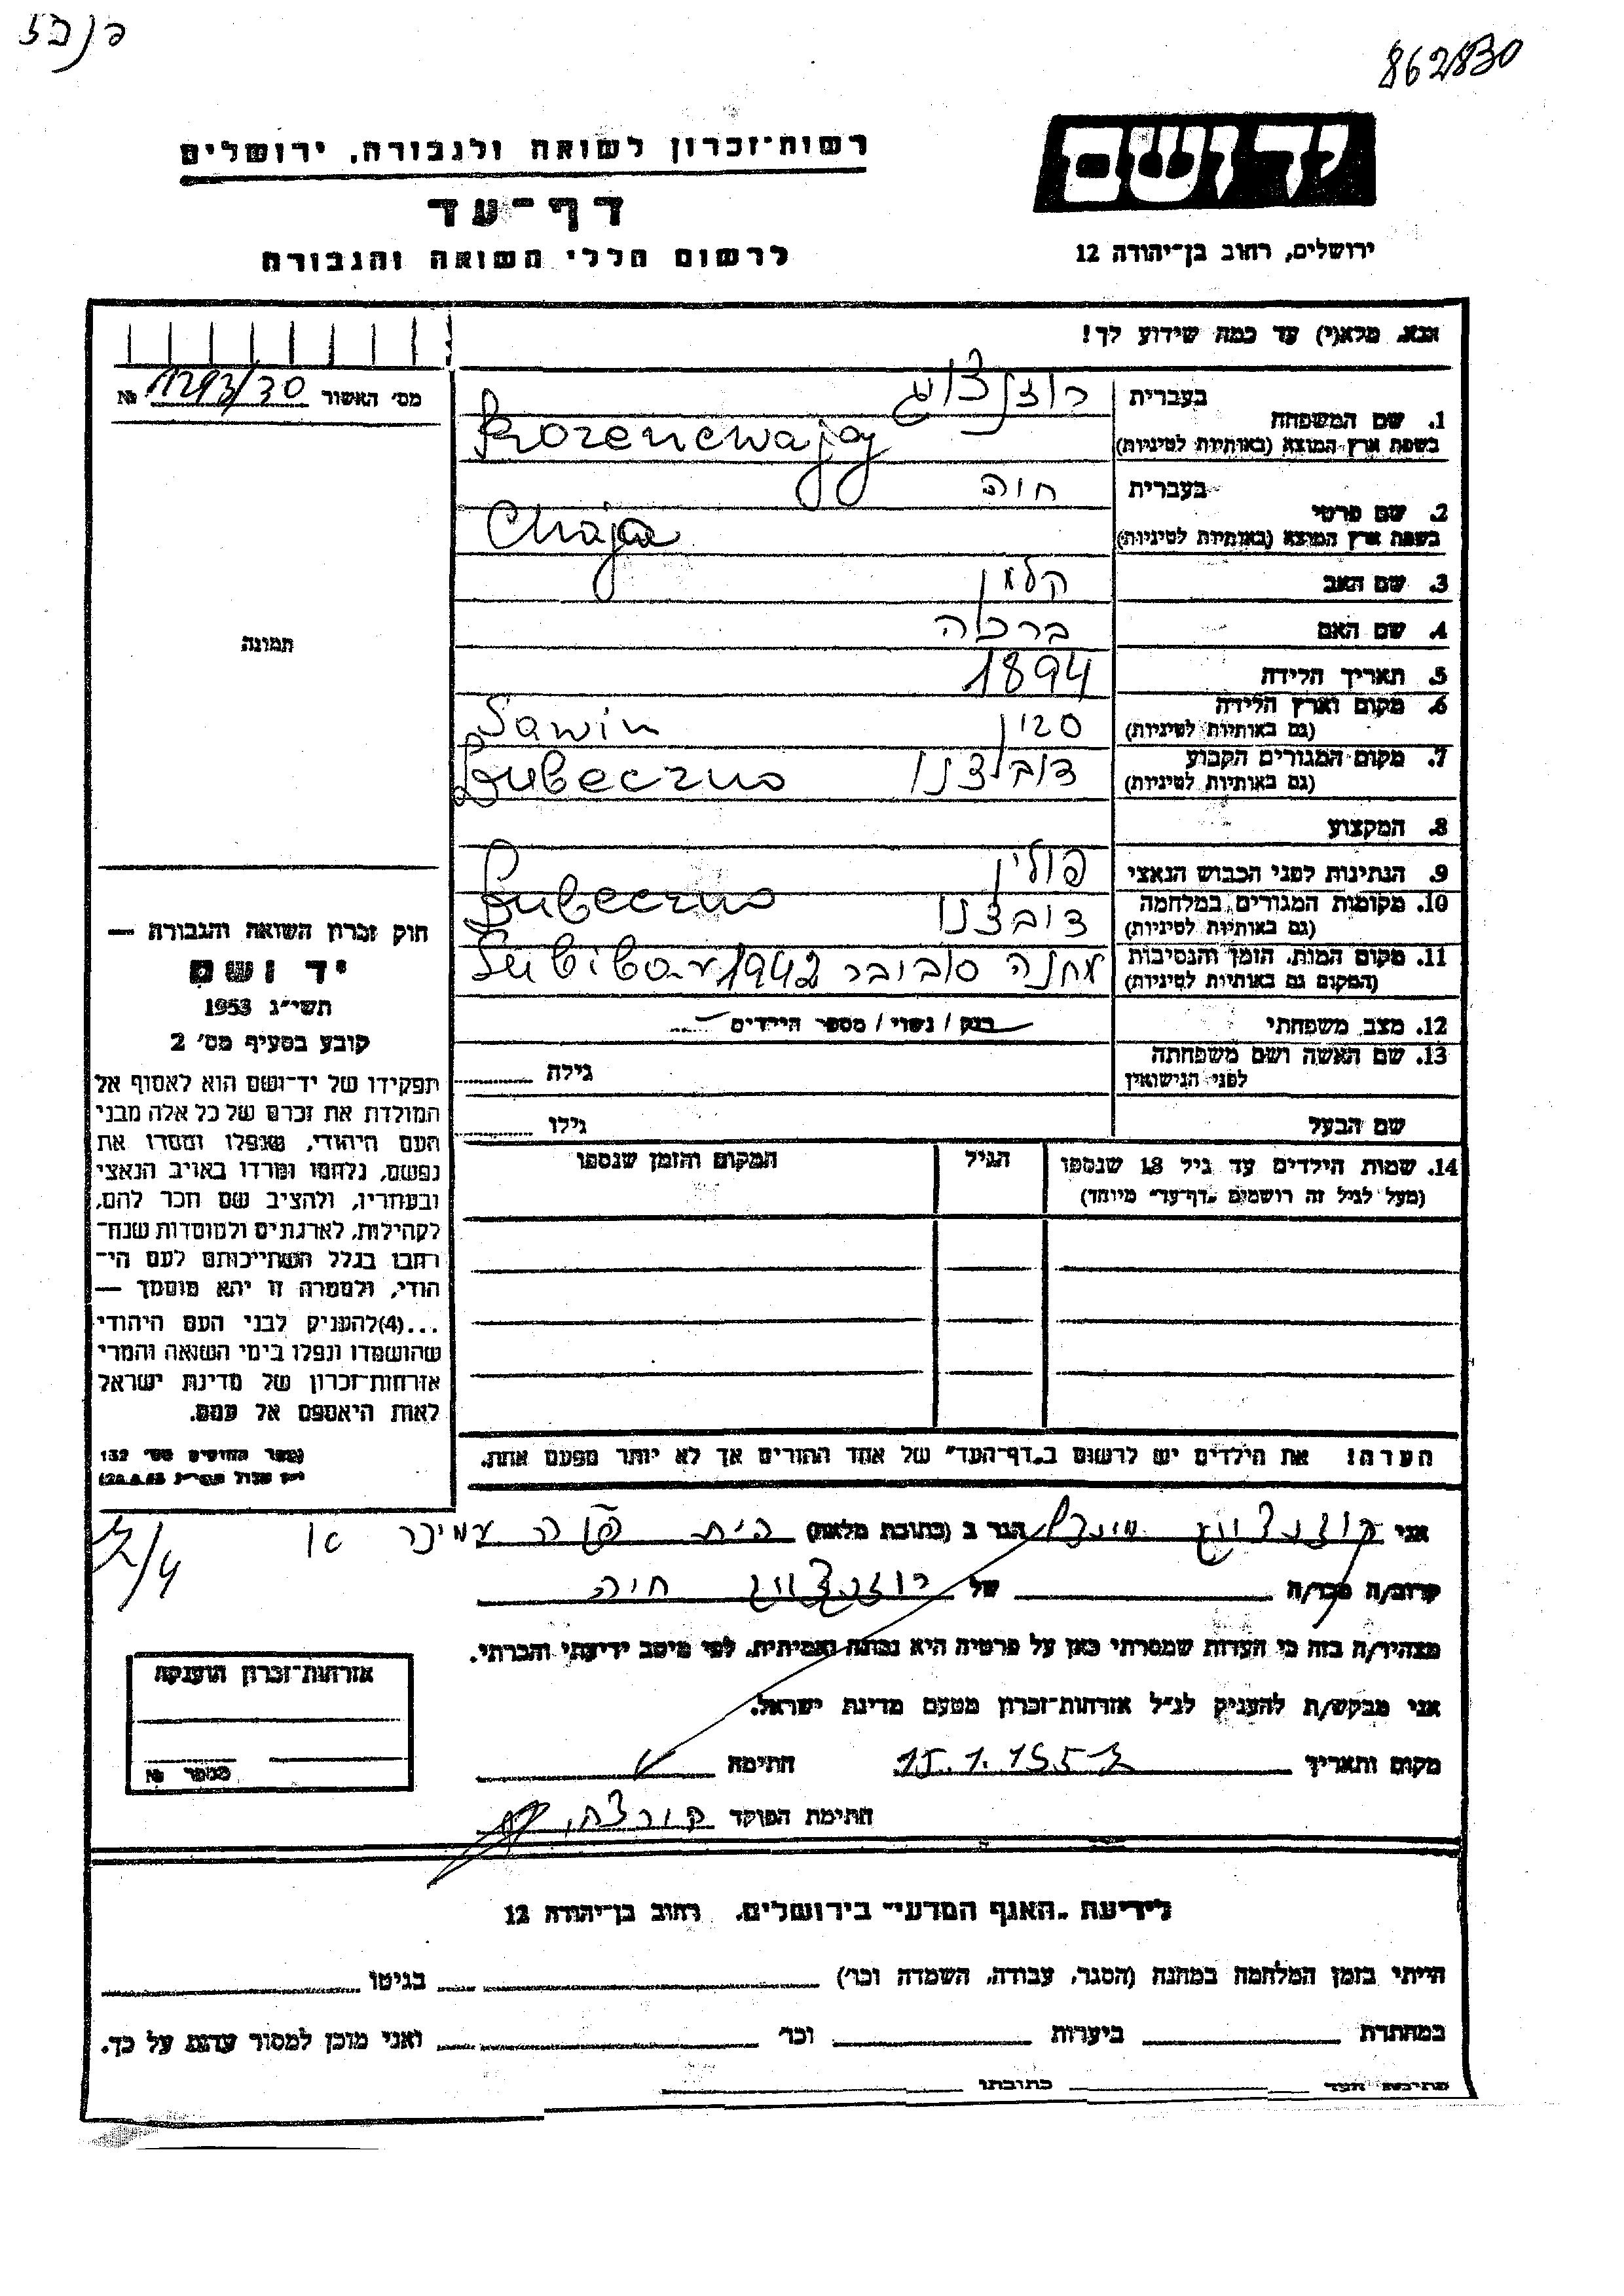 862830
יד ושם
רשות־זכרון לשואה ולגבורה, ירושלים
דף־עד
לרשום חללי השואה והגבורה
ירושלים, רחוב בן־יהודה 12
אנא, מלא(י) עד כמה שידוע לך!
מס' האשור 1293/30 №
בעברית
1. שם המשפחה
בשפת ארץ המוצא (באותיות לטיניות) Rozencwajg
בעברית חיה
2. שם פרטי
בשפת ארץ המוצא (באותיות לטיניות) Chaja
3. שם האב קלמן
4. שם האם ברכה
תמונה
5. תאריך הלידה 1894
6. מקום וארץ הלידה סבין Sawin
(גם באותיות לטיניות)
7. מקום המגורים הקבוע
(גם באותיות לטיניות)
8. המקצוע
9. הנתינות לפני הכבוש הנאצי פולין
10. מקומות המגורים במלחמה
(גם באותיות לטיניות)
11. מקום המות, הזמן והנסיבות מחנה סוביבר 1942
(המקום גם באותיות לטיניות)
12. מצב משפחתי רווק / נשוי / מספר הילדים
13. שם האשה ושם משפחתה
לפני הנישואין גילה
שם הבעל גילו
14. שמות הילדים עד גיל 18 שנספו הגיל המקום והזמן שנספו
(מעל לגיל זה רושמים "דף־עד" מיוחד)
חוק זכרון השואה והגבורה —
יד ושם
תשי"ג 1953
קובע בסעיף מס' 2
תפקידו של יד־ושם הוא לאסוף אל
המולדת את זכרם של כל אלה מבני
העם היהודי, שנפלו ומסרו את
נפשם, נלחמו ומרדו באויב הנאצי
ובעוזריו, ולהציב שם וזכר להם,
לקהילות, לארגונים ולמוסדות שנח־
רבו בגלל השתייכותם לעם הי־
הודי, ולמטרה זו יהא מוסמך —
...(4) להעניק לבני העם היהודי
שהושמדו ונפלו בימי השואה והמרי
אזרחות־זכרון של מדינת ישראל
לאות היאספם אל עמם.
ספר החוקים מס' 132
הערה! את הילדים יש לרשום ב"דף־העד" של אחד ההורים אך לא יותר מפעם אחת.
אני הגר ב (כתובת מלאה)
קרוב/ה מכר/ה של חיה
מצהיר/ה בזה כי העדות שמסרתי כאן על פרטיה היא נכונה ואמיתית, לפי מיטב ידיעתי והכרתי.
אני מבקש/ת להעניק לנ"ל אזרחות־זכרון מטעם מדינת ישראל.
מקום ותאריך חתימה
חתימת הפוקד
אזרחות־זכרון הוענקה
מספר №
לידיעת "האגף המדעי" בירושלים, רחוב בן־יהודה 12
הייתי בזמן המלחמה במחנה (הסגר, עבודה, השמדה וכו') בגיטו
במחתרת ביערות וכו' ואני מוכן למסור עדות על כך.
חתימת העד כתובתו